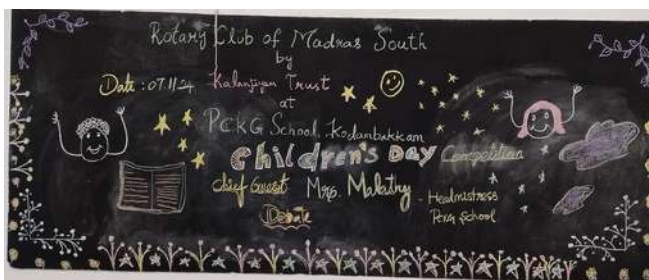 Rotary Club of Madras South
by
Date : 07.11.24 Kalanjiyam Trust
at
PCKG School, Kodambakkam
Children's Day Competition
Chief Guest Mrs. Malathy - Headmistress
PCKG School
Debate